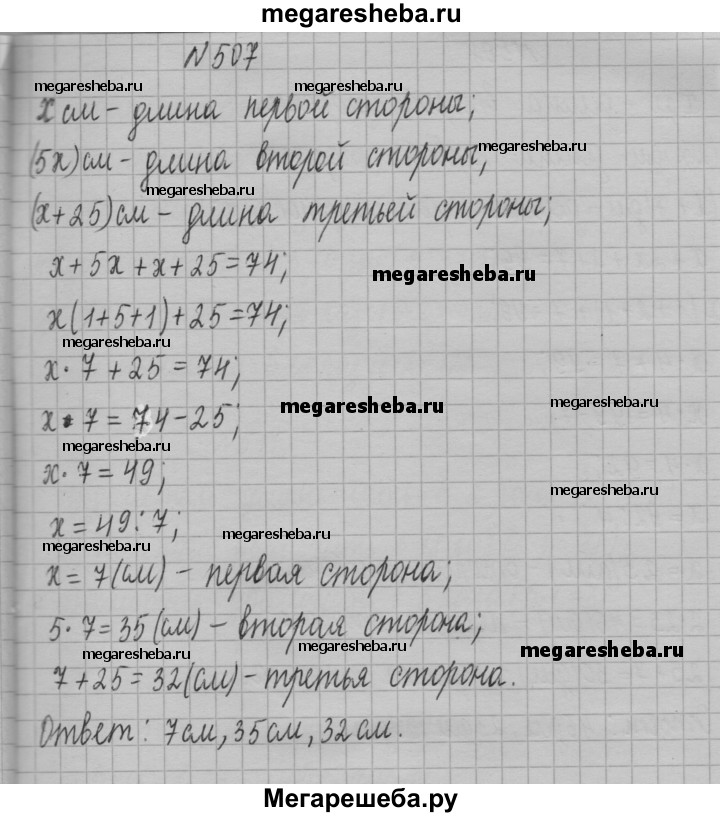 megaresheba.ru
N507
megaresheba.ru megaresheba.ru
x см - длина первой стороны;
megaresheba.ru
(5x) см - длина второй стороны;
megaresheba.ru
(x+25) см - длина третьей стороны;
x+5x+x+25=74;
megaresheba.ru
x(1+5+1)+25=74;
megaresheba.ru
x·7+25=74;
megaresheba.ru megaresheba.ru
x·7=74-25;
megaresheba.ru
x·7=49;
megaresheba.ru
x=49:7;
megaresheba.ru
megaresheba.ru
x=7(см) - первая сторона;
5·7=35(см) - вторая сторона;
megaresheba.ru megaresheba.ru megaresheba.ru
7+25=32(см) - третья сторона.
Ответ: 7см, 35см, 32см.
megaresheba.ru megaresheba.ru
Мегарешеба.ру